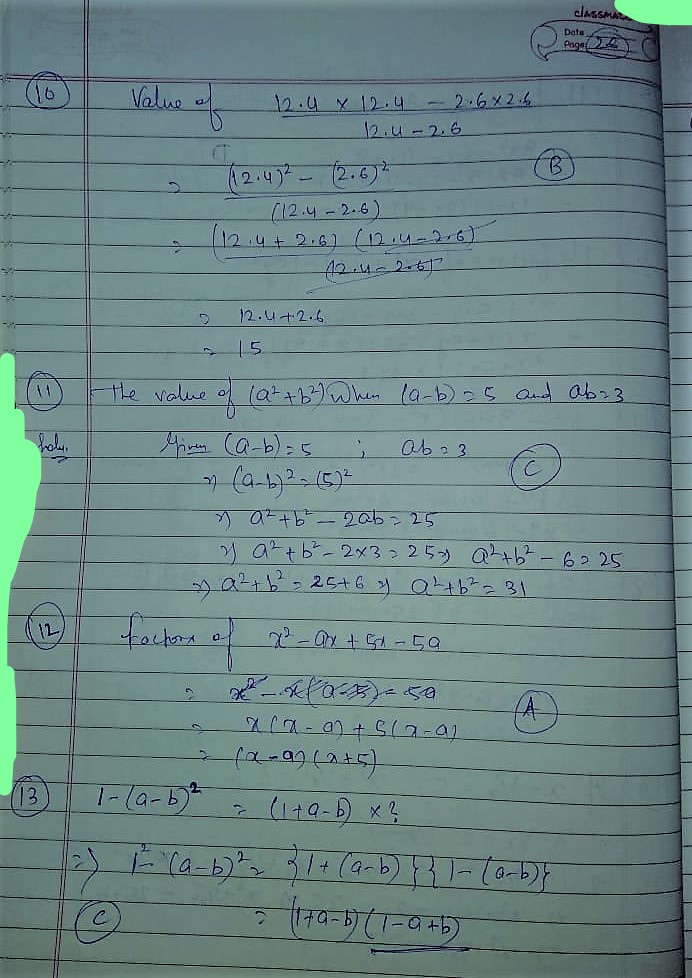 classmate
Date
Page 26
10 Value of 12.4 × 12.4 - 2.6×2.6
12.4 - 2.6
⇒ (12.4)² - (2.6)² B
(12.4 - 2.6)
= (12.4 + 2.6) (12.4 - 2.6)
(12.4 - 2.6)
⇒ 12.4+2.6
= 15
11 The value of (a²+b²) When (a-b) = 5 and ab=3
Soln. Given (a-b)=5 ; ab=3 C
⇒ (a-b)² = (5)²
⇒ a²+b² - 2ab = 25
⇒ a²+b² - 2×3 = 25 ⇒ a²+b² - 6 = 25
⇒ a²+b² = 25+6 ⇒ a²+b² = 31
12 factors of x² - ax + 5x - 5a
= x(x-a) + 5(x-a) A
= (x-a)(x+5)
13 1-(a-b)² = (1+a-b) × ?
⇒ 1² - (a-b)² = {1+(a-b)}{1-(a-b)}
C = (1+a-b)(1-a+b)